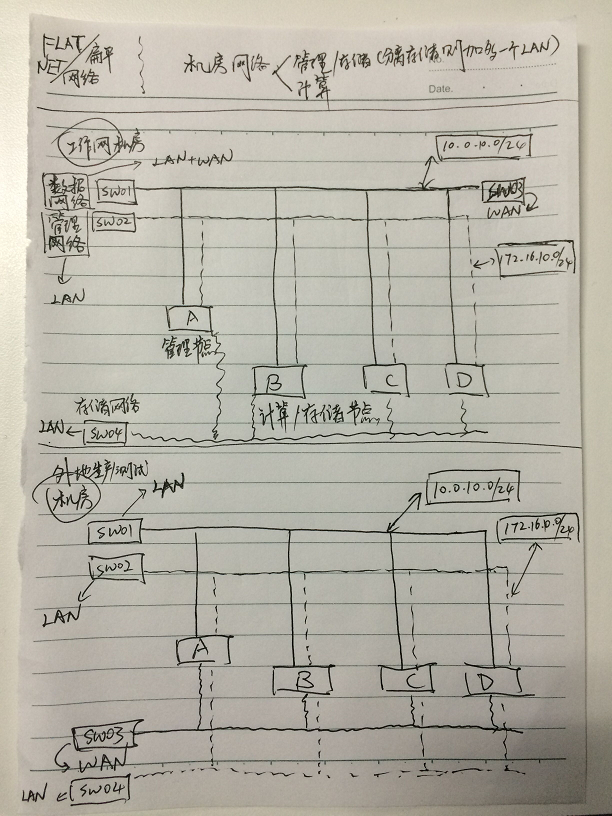 FLAT
NET/扁平
网络
机房网络
管理/存储(分离存储则加多一个LAN)
计算
Date.
工作网机房
LAN+WAN
10.0.10.0/24
数据
网络
SW01
SW03
WAN
管理
网络
SW02
172.16.10.0/24
LAN
A
管理节点
B
C
D
存储网络
计算/存储节点
LAN
SW04
外地生产测试
机房
LAN
10.0.10.0/24
SW01
172.16.10.0/24
SW02
LAN
A
B
C
D
SW03
WAN
LAN
SW04